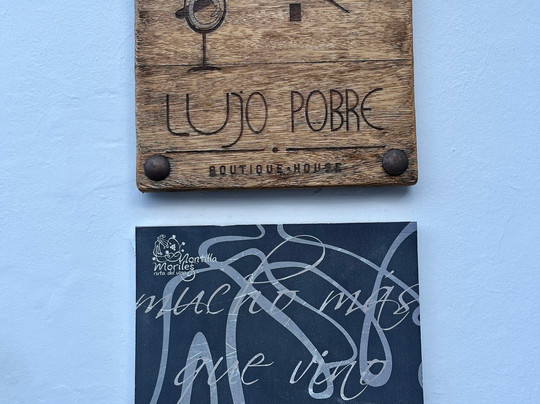 LUJO POBRE
BOUTIQUE·HOUSE
Montilla
Moriles
ruta del vino
mucho más
que vino